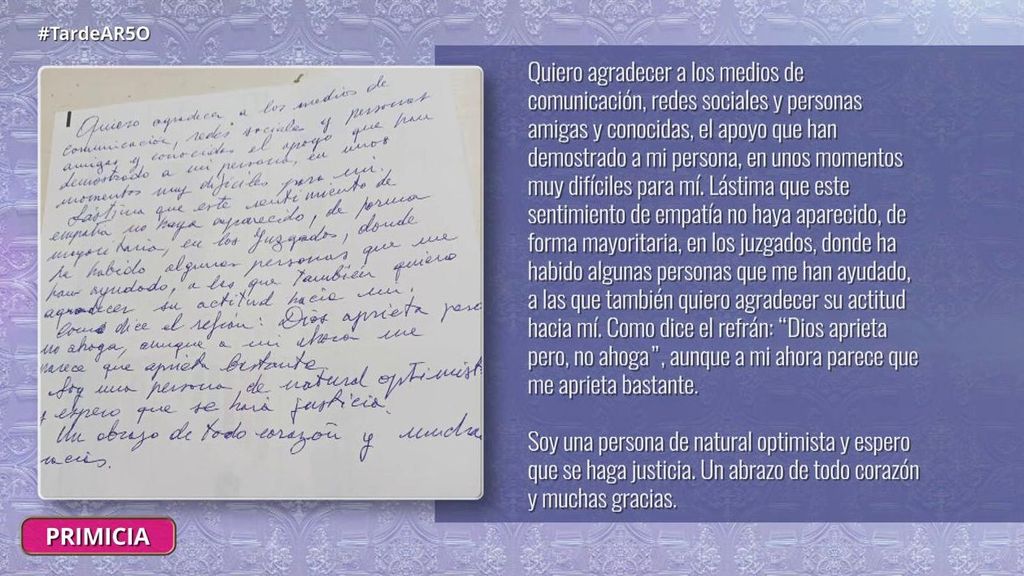 #TardeAR5O
Quiero agradecer a los medios de
comunicación, redes sociales y personas
amigas y conocidas el apoyo que han
demostrado a mi persona, en unos
momentos muy difíciles para mi.
Lástima que este sentimiento de
empatía no haya aparecido, de forma
mayoritaria, en los Juzgados, donde
ha habido algunas personas que me
han ayudado, a las que también quiero
agradecer su actitud hacia mi.
Como dice el refrán: Dios aprieta pero
no ahoga, aunque a mi ahora me
parece que aprieta bastante.
Soy una persona de natural optimist
y espero que se haga justicia.
Un abrazo de todo corazón y mucha
racias.
Quiero agradecer a los medios de
comunicación, redes sociales y personas
amigas y conocidas, el apoyo que han
demostrado a mi persona, en unos momentos
muy difíciles para mí. Lástima que este
sentimiento de empatía no haya aparecido, de
forma mayoritaria, en los juzgados, donde ha
habido algunas personas que me han ayudado,
a las que también quiero agradecer su actitud
hacia mí. Como dice el refrán: “Dios aprieta
pero, no ahoga”, aunque a mi ahora parece que
me aprieta bastante.
Soy una persona de natural optimista y espero
que se haga justicia. Un abrazo de todo corazón
y muchas gracias.
PRIMICIA